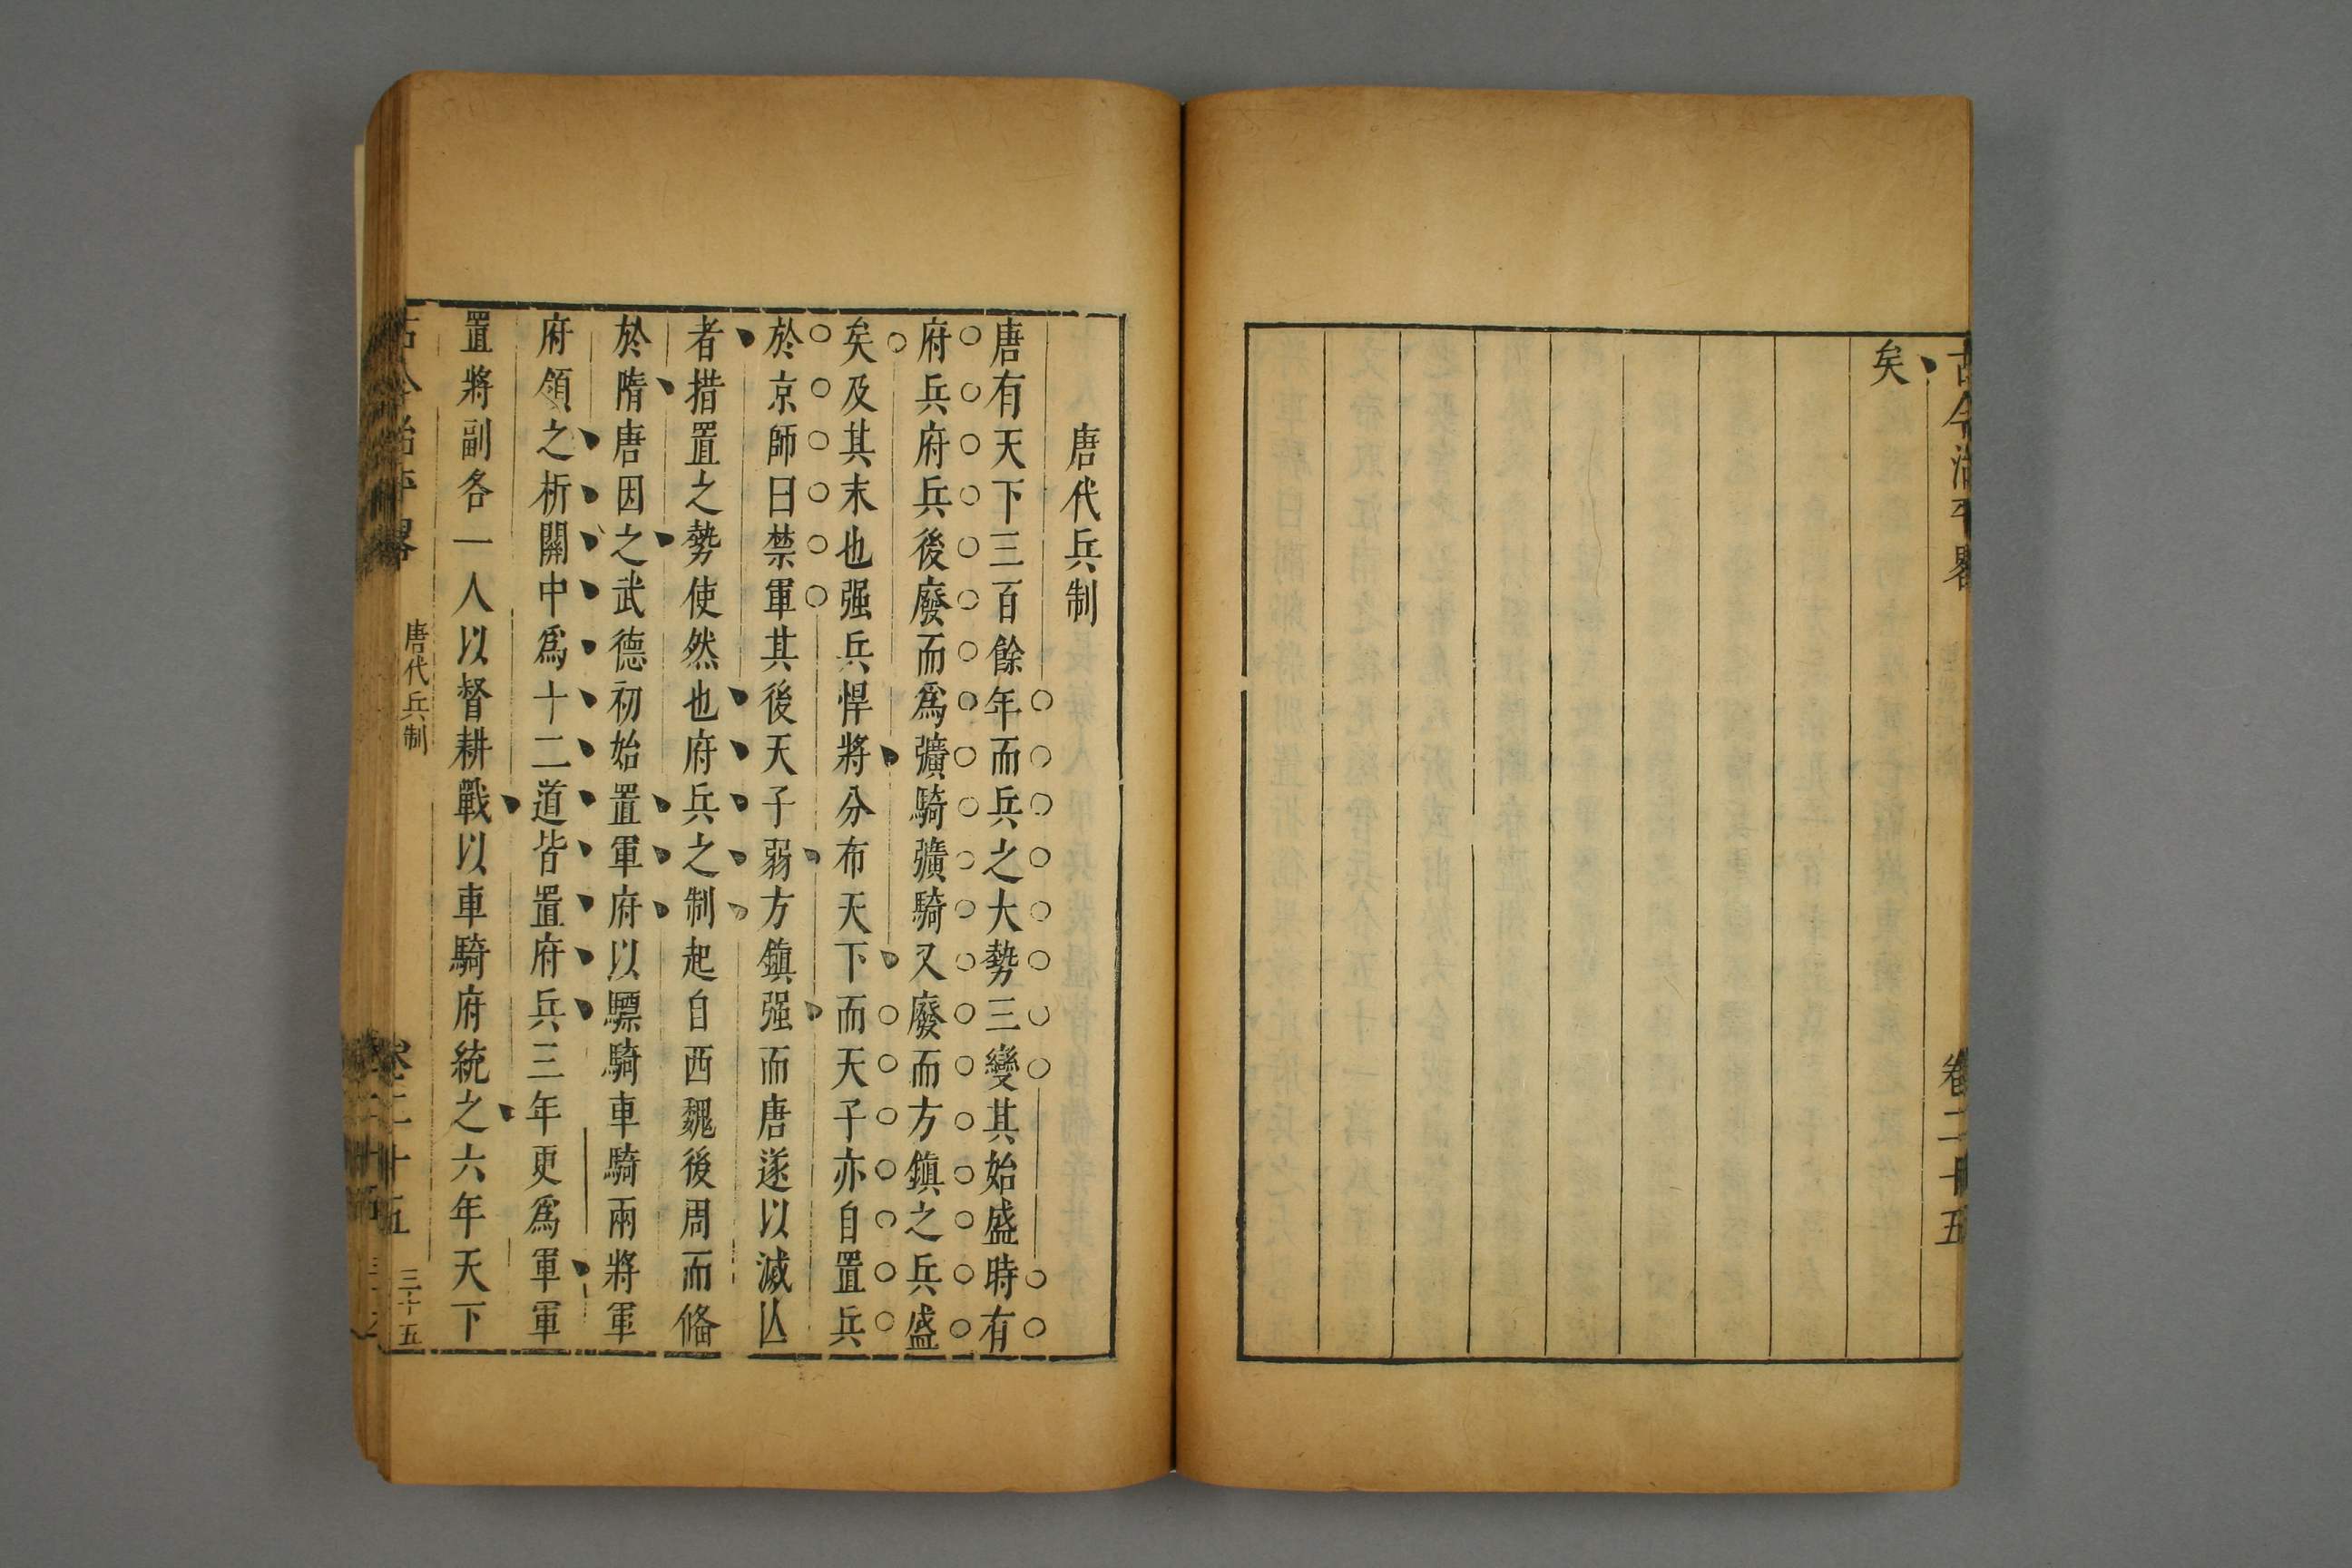 古今治平畧
卷二十五
矣
唐代兵制
唐有天下三百餘年而兵之大勢三變其始盛時有
府兵府兵後廢而爲彍騎彍騎又廢而方鎮之兵盛
矣及其末也强兵悍將分布天下而天子亦自置兵
於京師曰禁軍其後天子弱方鎮强而唐遂以滅亾
者措置之勢使然也府兵之制起自西魏後周而俻
於隋唐因之武德初始置軍府以驃騎車騎兩將軍
府領之析關中爲十二道皆置府兵三年更爲軍軍
置將副各一人以督耕戰以車騎府統之六年天下
古今治平畧
唐代兵制
卷二十五
三十五